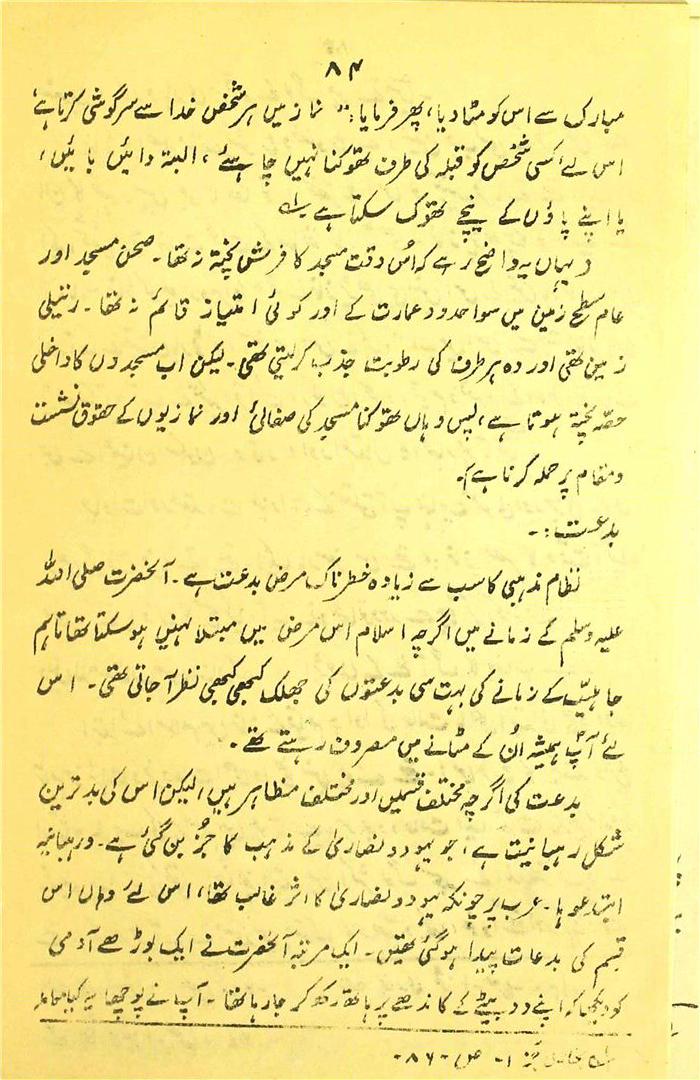 ۸۴
مبارک سے اس کو مٹا دیا، پھر فرمایا: "نماز میں ہر شخص خدا سے سرگوشی کرتا ہے،
اس لئے کسی شخص کو قبلہ کی طرف تھوکنا نہیں چاہئے، البتہ دائیں بائیں،
یا اپنے پاؤں کے نیچے تھوک سکتا ہے
(یہاں یہ واضح رہے کہ اُس وقت مسجد کا فرش پختہ نہ تھا۔ صحن مسجد اور
عام سطح زمین میں سوا حدود عمارت کے اور کوئی امتیاز قائم نہ تھا۔ رتیلی
زمین تھی اور وہ ہر طرف کی رطوبت جذب کر لیتی تھی۔ لیکن اب مسجدوں کا داخلی
حصہ پختہ ہوتا ہے، پس وہاں تھوکنا مسجد کی صفائی اور نمازیوں کے حقوق نشست
و مقام پر حملہ کرنا ہے)۔
بدعت:۔
نظام مذہبی کا سب سے زیادہ خطرناک مرض بدعت ہے۔ آنحضرت صلی اللہ
علیہ وسلم کے زمانے میں اگرچہ اسلام اس مرض میں مبتلا نہیں ہو سکتا تھا تاہم
جاہلیت کے زمانے کی بہت سی بدعتوں کی جھلک کبھی کبھی نظر آ جاتی تھی۔ اس
لئے آپؐ ہمیشہ اُن کے مٹانے میں مصروف رہتے تھے۔
بدعت کی اگرچہ مختلف قسمیں اور مختلف مظاہر ہیں، لیکن اس کی بد ترین
شکل رہبانیت ہے، جو یہود و نصاریٰ کے مذہب کا جُز بن گئی ہے۔ ورہبانیہ
ابتدعوہا۔ عرب پر چونکہ یہود و نصاریٰ کا اثر غالب تھا، اس لئے وہاں اس
قسم کی بدعات پیدا ہو گئی تھیں۔ ایک مرتبہ آنحضرت نے ایک بوڑھے آدمی
کو دیکھا کہ اپنے دو بیٹے کے کاندھے پر ہاتھ رکھ کر جا رہا تھا۔ آپ نے پوچھا یہ کیا معاملہ
جز ۱۔ ص ۔ ۸۶۔